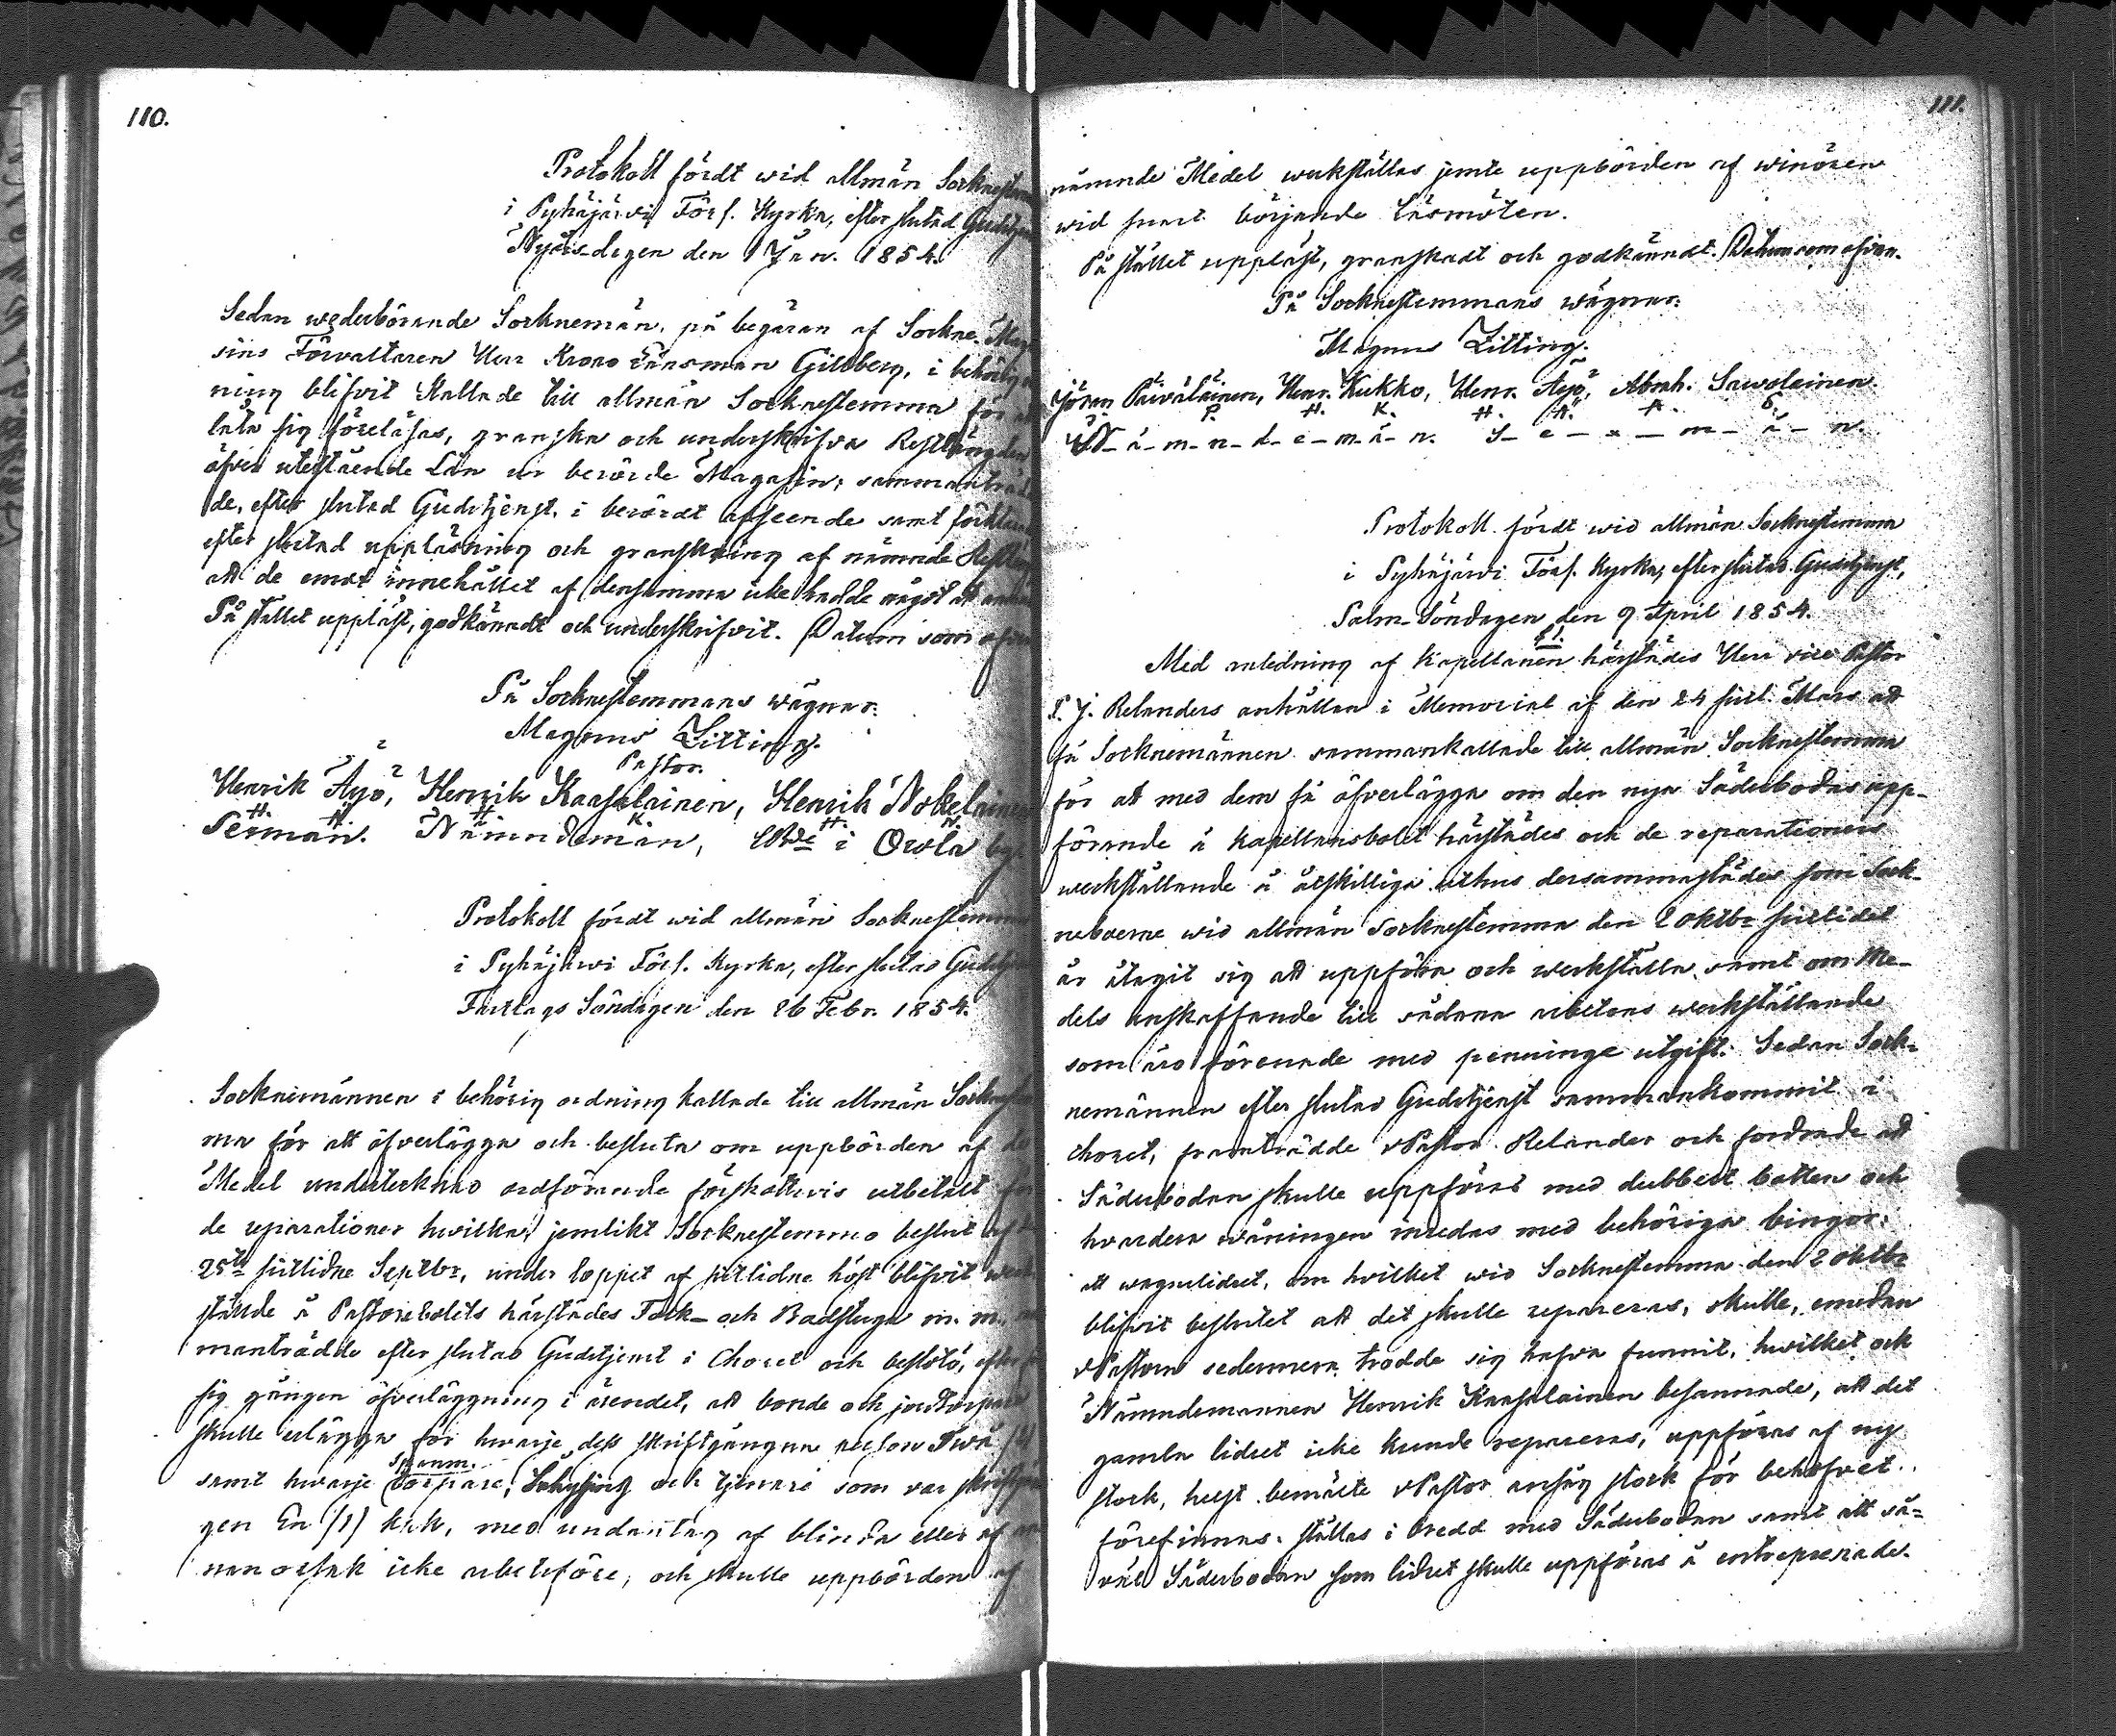 110.
Protokoll fördt wid allmän Socknestem
i Pyhäjärwi Förs. Kyrka, efter slutad Gudstjen
Nyårs-dagen den 1 Jan. 1854.
Sedan wederbörande Socknemän, på begäran af Sockne-Maga
sins Förvaltaren Herr Krono Länsman Gillberg, i behörig
ning blifvit kallade till allmän Socknestemma för
låta sig föreläsas, granska och underskrifva Restlängden
öfver utestående Lån ur berörde Magasin; sammanträd
de, efter slutad Gudstjenst, i berördt afseende samt förkla
efter slutad uppläsning och granskning af nämnde Restlän
att de emot innehållet af densamma icke hade något att
På stället uppläst, godkänndt och underskrifvit. Datum som ofvan
På Socknestemmans wägnar:
Magnus Zitting.
Pastor.
Henrik Äyö, Henrik Kaasalainen, Henrik Nokelainen
H. Ä. H. K. H. N.
Sexman. Nämndeman, Bde i Orola by
Protokoll fördt wid allmän Socknestemm
i Pyhäjärwi Förs. Kyrka, efter slutad Gudstjen
Fastlags Söndagen den 26 Febr. 1854.
Socknemännen i behörig ordning kallade till allmän Socknestem
ma för att öfverlägga och besluta om uppbörden af de
Medel undertecknad ordförande förskottsvis utbetalt för
de reparationer hwilka, jemlikt Socknestemmo beslut af
25te sistlidne Septbr, under loppet af sistlidne höst blifvit werk
stälde å Pastorsbolets härstädes Tork- och Badstuga m. m.,
manträdde efter slutad Gudstjenst i Choret och beslöto, efter
sig gången öfverläggning i ärendet, att bonde och jordtorpare
skulle erlägga för hwarje dess skriftgångna person Twå /2/
samt hwarje torpare, Inhysing och tjenare som var skriftgån
Spanm.
gen En /1/ kk, med undantag af blinda eller af
nan orsak icke arbetsföre, och skulle uppbörden af
111.
nämnde Medel werkställas jemte uppbörden af winören
wid snart börjande Läsmöten.
På stället uppläst, granskadt och godkänndt. Datum som ofvan.
På Socknestemmans wägnar:
Magnus Zitting.
Jöran Päiväläinen, Henr. Kukko, Henr. Äyö, Abrah. Sawolainen.
J. P. H. K. H. Ä. A. S.
N-ä-m-n-d-e-m-ä-n. S-e-x-m-ä-n.
Protokoll fördt wid allmän Socknestemma
i Pyhäjärwi Förs. Kyrka, efter slutad Gudstjenst,
Palm-Söndagen den 9 April 1854.
§1.
Med anledning af Kapellanen härstädes Herr vice Pastor
P. J. Relanders anhållan i Memorial af den 24 sistl. Mars att
få Socknemännen sammankallade till allmän Socknestemma
för att med dem få öfverlägga om den nya Sädesbodas upp-
förande å Kapellansbolet härstädes och de reparationers
werkställande å åtskilliga uthus dersammastädes som Sock-
neboerne wid allmän Socknestemma den 2 Oktbr sistlidet
år åtagit sig att uppföra och werkställa, samt om Me-
dels anskaffande till sådana arbetens werkställande
som äro förenade med penninge utgift. Sedan Sock-
nemännen efter slutad Gudstjenst sammankommit i
choret, framträdde vPastor Relander och fordrade att
Sädesbodan skulle uppföras med dubbelt botten och
hvardera våningen inredas med behöriga bingar:
att wagnslidret, om hvilket wid Socknestemma den 2 Oktbr
blifvit beslutet att det skulle repareras, skulle, emedan
vPastorn sedermera trodde sig hafva funnit, hwilket ock
Nämndemannen Henrik Kaasalainen besannade, att det
gamla lidret icke kunde repareras, uppföras af ny
stock, helst bemälte vPastor ansåg stock för behofvet
förefinnas, ställas i bredd med Sädesbodan samt att så-
väl Sädesbodan som lidret skulle uppföras å entreprenade.